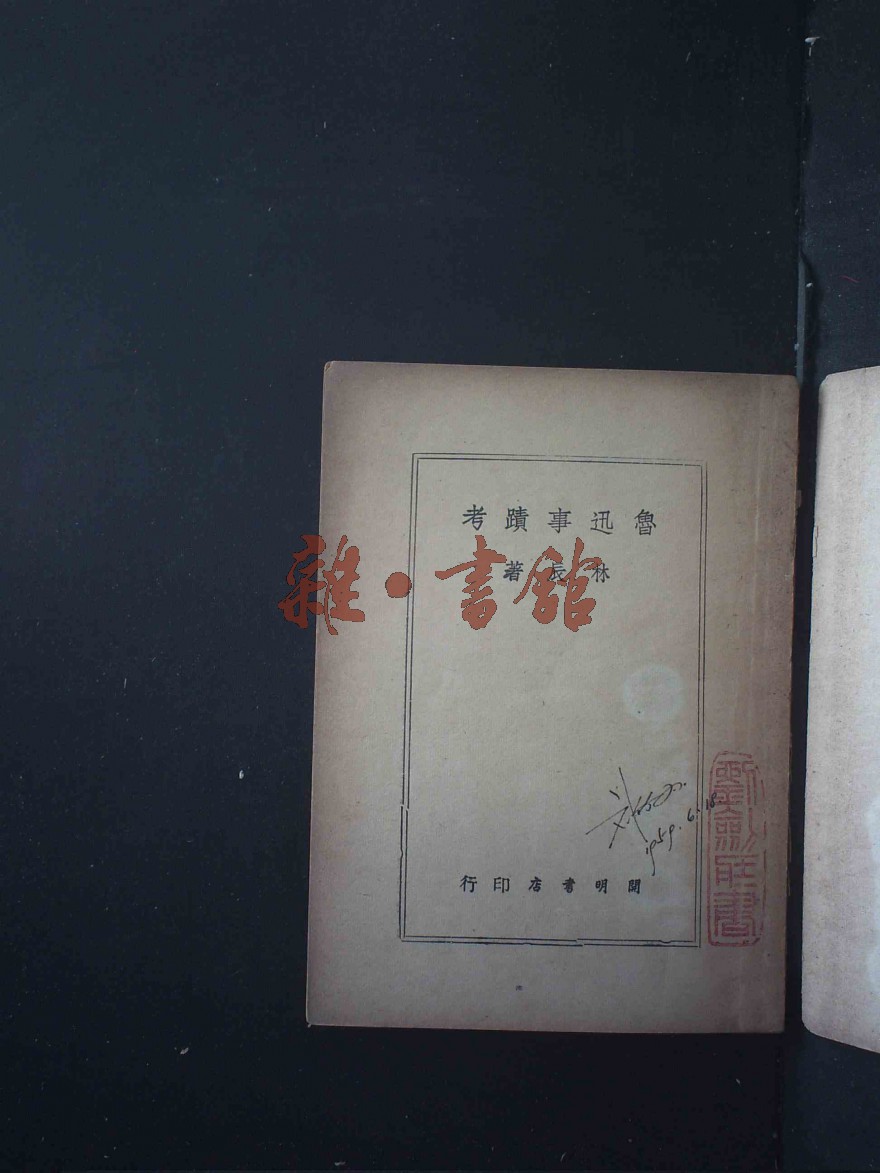 魯迅事蹟考
林辰著
雜·書館
1959.6.18
開明書店印行